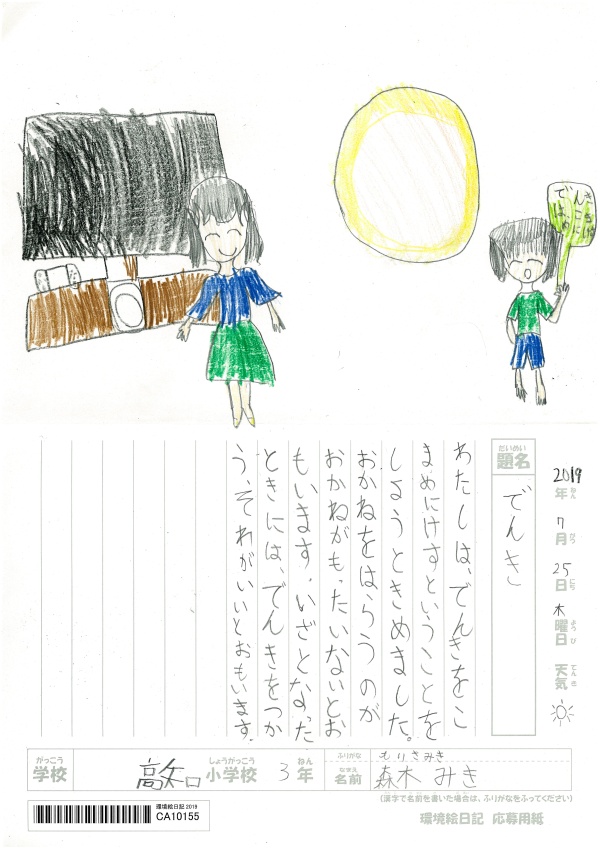 でんき
は、こま
めにけす
2019年 7月 25日 木曜日 天気
ねん がつ にち ようび てんき
だいめい
題名
でんき
わたしは、でんきをこ
まめにけすということを
しようときめました。
おかねをはらうのが
おかねがもったいないとお
もいます。いざとなった
ときには、でんきをつか
う、それがいいとおもいます。
がっこう しょうがっこう ねん
学校 高矢口 小学校 3年
ふりがな もりきみき
なまえ
名前 森木 みき
(漢字で名前を書いた場合は、ふりがなをふってください)
環境絵日記 2019
CA10155
環境絵日記 応募用紙